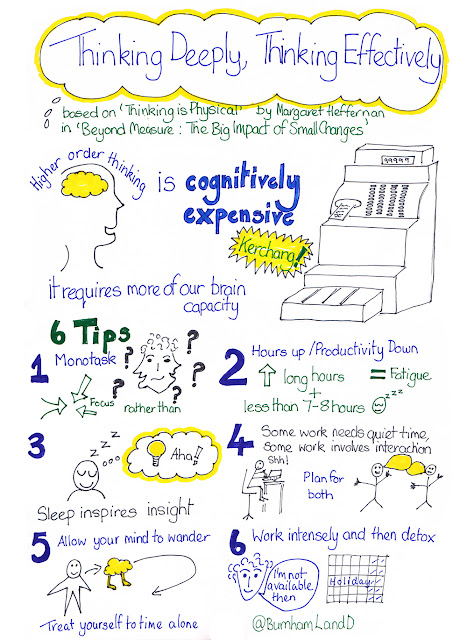 Thinking Deeply, Thinking Effectively
based on 'Thinking is Physical' by Margaret Heffernan
in 'Beyond Measure: The Big Impact of Small Changes'
Higher order thinking
is cognitively
expensive
99999
Kerchang!
it requires more of our brain
capacity
6 Tips
1 Monotask
? ? ? ? ?
Focus rather than
2 Hours up/Productivity Down
long hours = Fatigue
+
less than 7-8 hours zzzz
3
z z z
Aha!
Sleep inspires insight
4 Some work needs quiet time,
some work involves interaction
Shh!
Plan for
both
5 Allow your mind to wander
Treat yourself to time alone
6 Work intensely and then detox
I'm not
available
then
Holiday
@BurnhamLandD